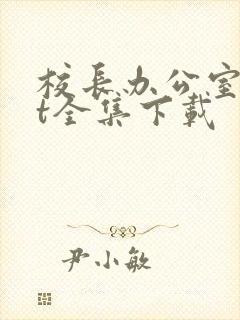 校长办公室
t全集下载
尹小敏